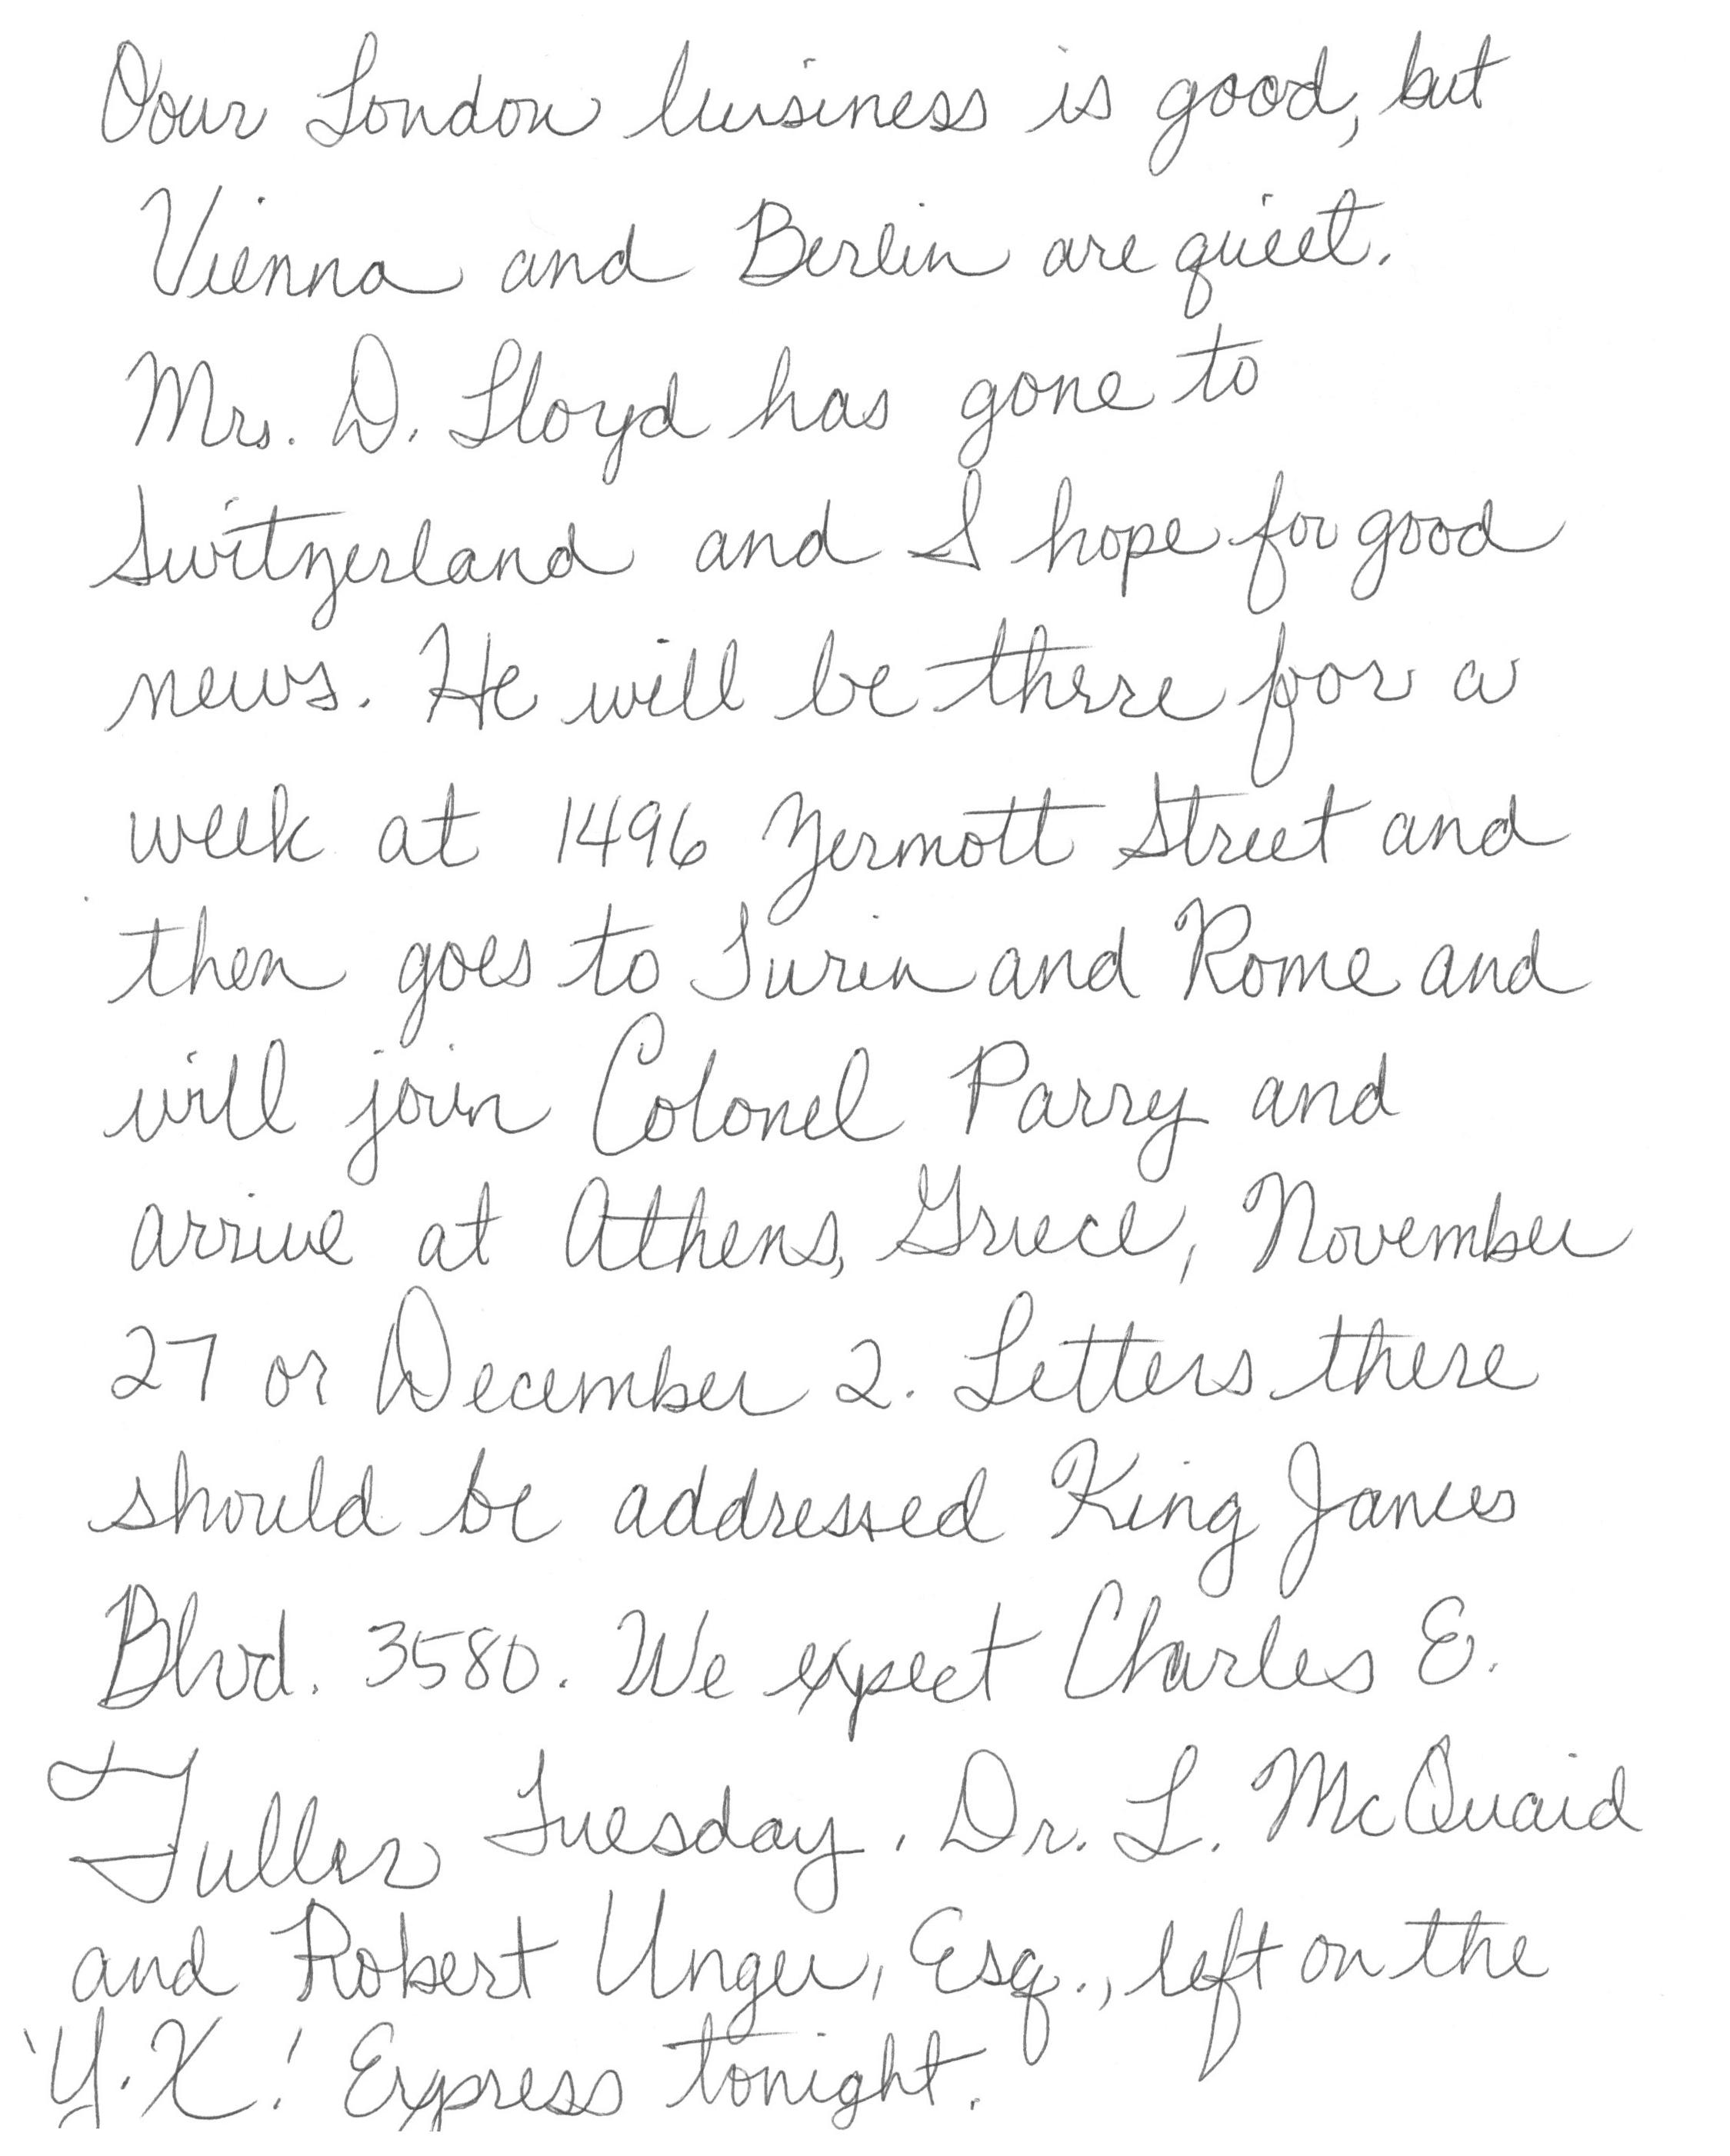 Oour London business is good, but
Vienna and Berlin are quiet.
Mrs. D. Lloyd has gone to
Switzerland and I hope for good
news. He will be there for a
week at 1496 Zermott Street and
then goes to Turin and Rome and
will join Colonel Parry and
arrive at Athens, Greece, November
27 or December 2. Letters there
should be addressed King James
Blvd. 3580. We expect Charles E.
Fuller Tuesday. Dr. L. McQuaid
and Robert Unger, Esq., left on the
'Y.X.' Express tonight.